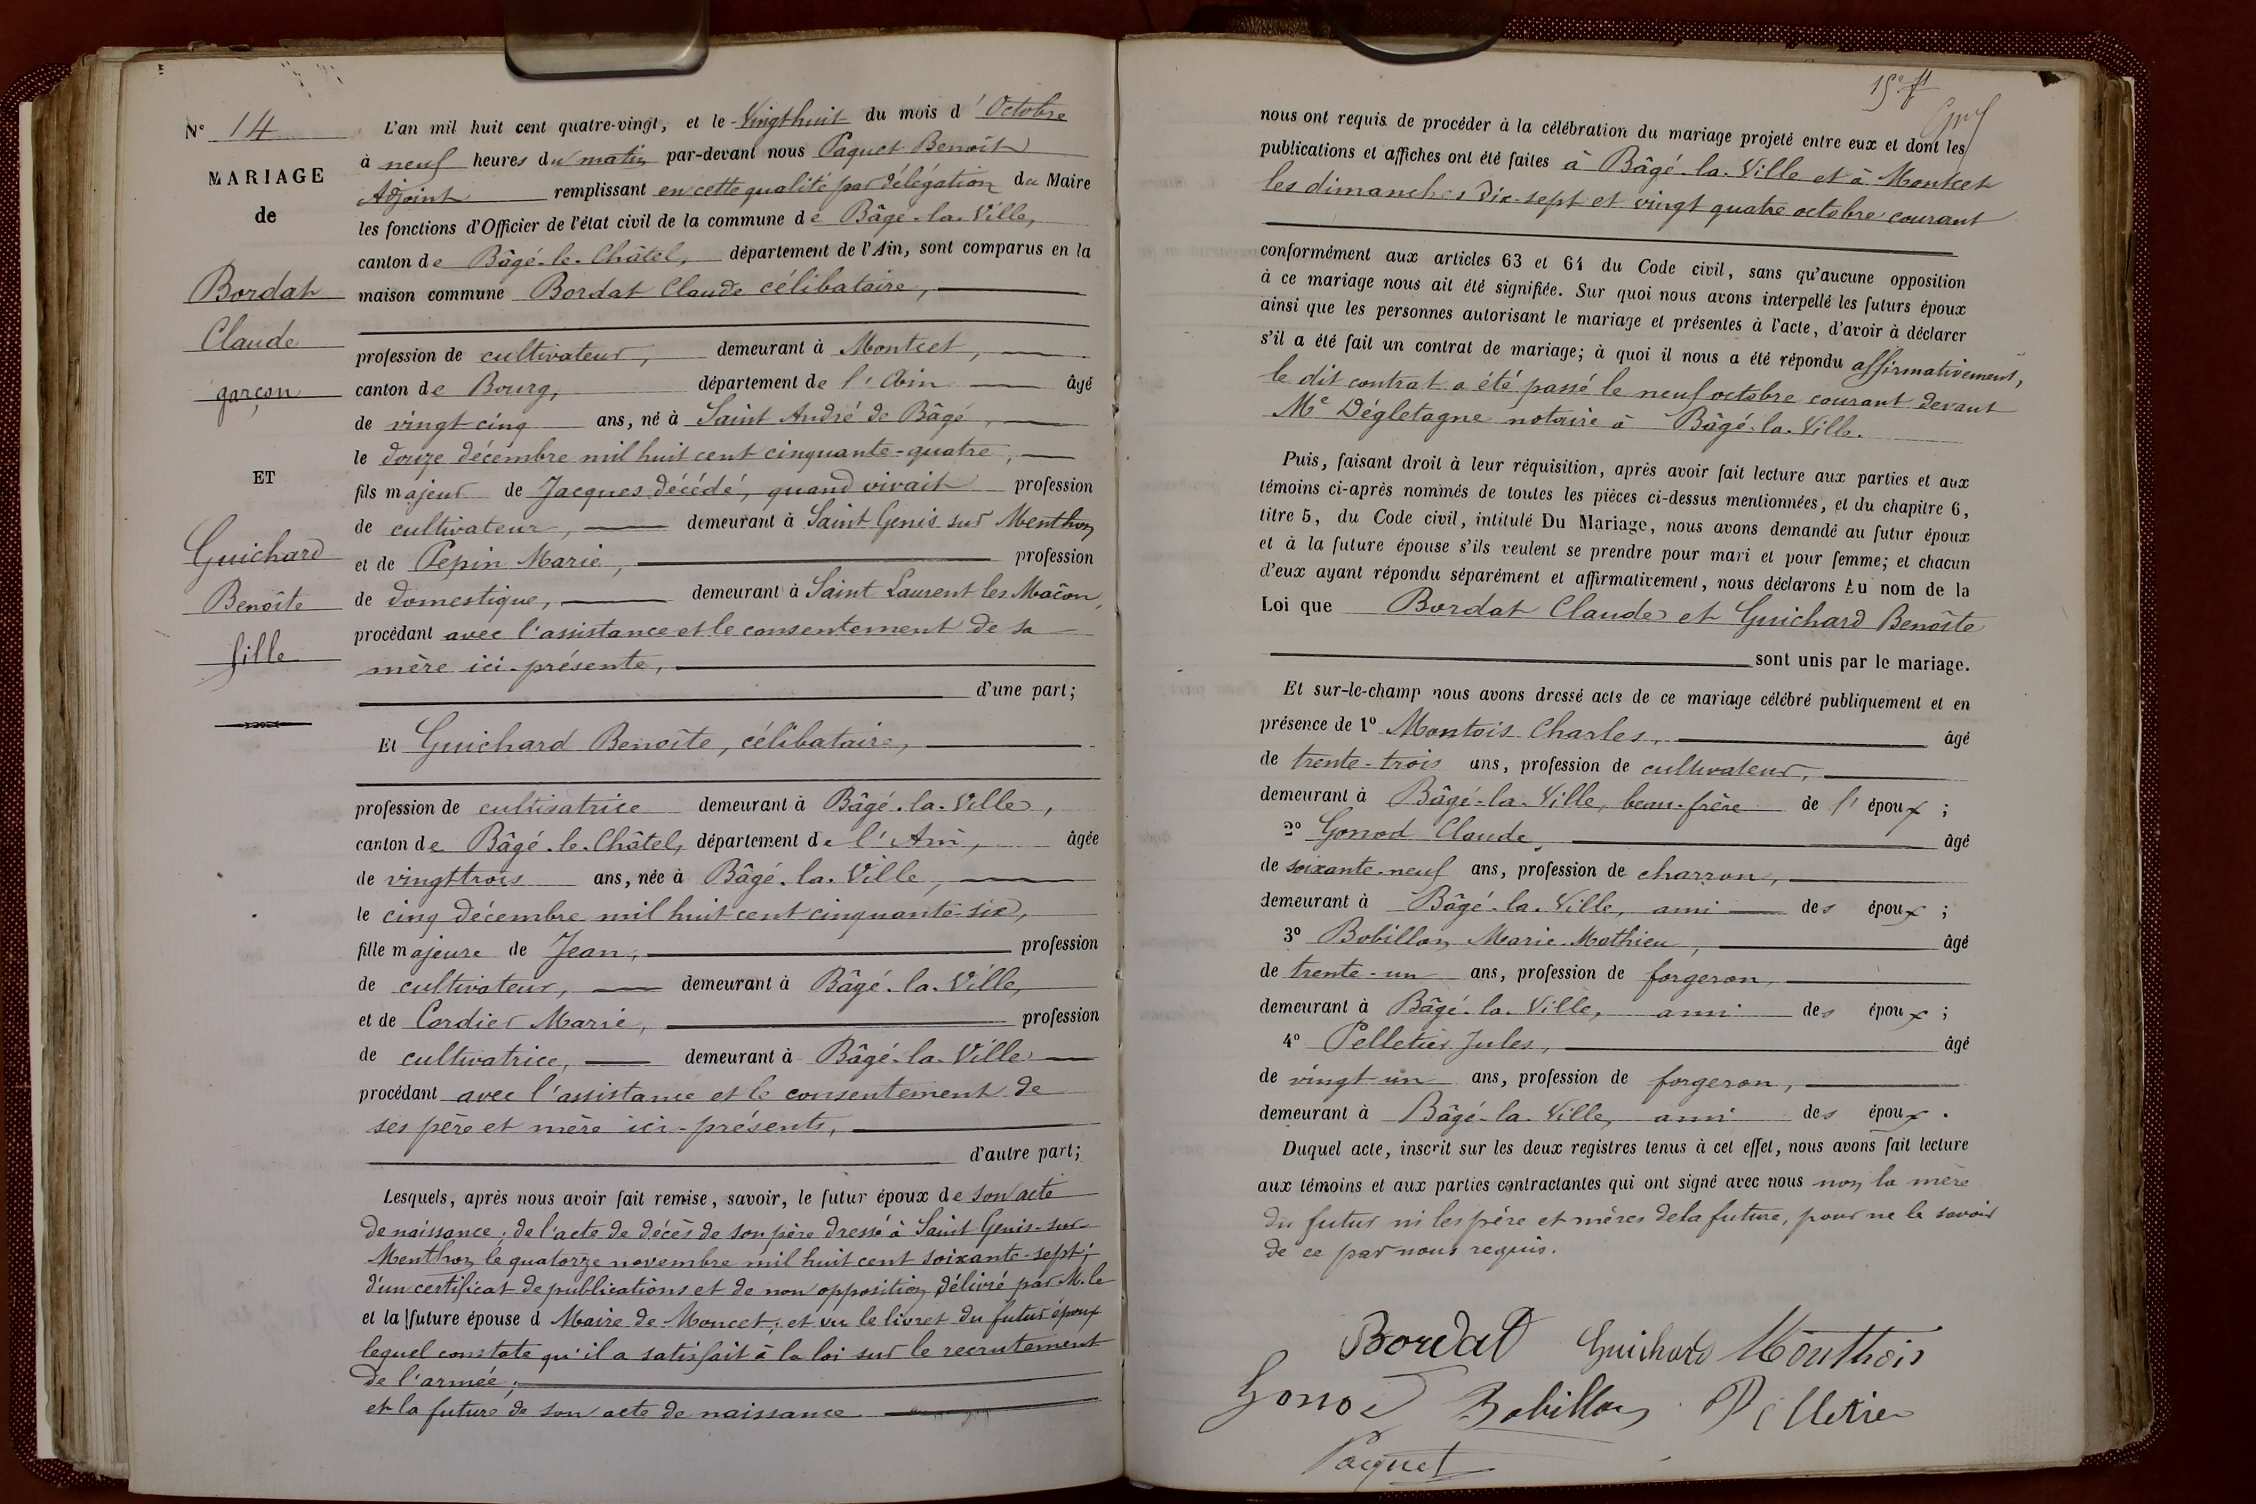 N° 14
MARIAGE
de
Bordat
Claude
garçon
ET
Guichard
Benoîte
fille
L'an mil huit cent quatre-vingt, et le Vingt huit du mois d'Octobre
à neuf heures du matin par-devant nous Paquet Benoît
Adjoint remplissant en cette qualité par délégation du Maire
les fonctions d'Officier de l'état civil de la commune de Bâgé-la-Ville,
canton de Bâgé-le-Châtel, département de l'Ain, sont comparus en la
maison commune Bordat Claude célibataire,
profession de cultivateur, demeurant à Montcet,
canton de Bourg, département de l'Ain âgé
de vingt cinq ans, né à Saint André de Bâgé,
le douze décembre mil huit cent cinquante-quatre,
fils majeur de Jacques décédé, quand vivait profession
de cultivateur, demeurant à Saint Genis sur Menthon
et de Pepin Marie, profession
de domestique, demeurant à Saint Laurent les Mâcon,
procédant avec l'assistance et le consentement de sa
mère ici-présente,
d'une part;
Et Guichard Benoîte, célibataire,
profession de cultivatrice demeurant à Bâgé-la-Ville,
canton de Bâgé-le-Châtel, département de l'Ain, âgée
de vingt trois ans, née à Bâgé-la-Ville,
le cinq décembre mil huit cent cinquante-six,
fille majeure de Jean, profession
de cultivateur, demeurant à Bâgé-la-Ville,
et de Cordier Marie, profession
de cultivatrice, demeurant à Bâgé-la-Ville
procédant avec l'assistance et le consentement de
ses père et mère ici-présents,
d'autre part;
Lesquels, après nous avoir fait remise, savoir, le futur époux de son acte
de naissance; de l'acte de décès de son père dressé à Saint Genis-sur-
Menthon le quatorze novembre mil huit cent soixante-sept;
d'un certificat de publications et de non opposition délivré par M. le
et la future épouse d Maire de Moncet; et vu le livret du futur époux
lequel constate qu'il a satisfait à la loi sur le recrutement
de l'armée;
et la future de son acte de naissance
15.
nous ont requis de procéder à la célébration du mariage projeté entre eux et dont les
publications et affiches ont été faites à Bâgé-la-Ville et à Montcet
les dimanches dix-sept et vingt quatre octobre courant
conformément aux articles 63 et 64 du Code civil, sans qu'aucune opposition
à ce mariage nous ait été signifiée. Sur quoi nous avons interpellé les futurs époux
ainsi que les personnes autorisant le mariage et présentes à l'acte, d'avoir à déclarer
s'il a été fait un contrat de mariage; à quoi il nous a été répondu affirmativement,
le dit contrat a été passé le neuf octobre courant devant
Me Dégletagne notaire à Bâgé-la-Ville.
Puis, faisant droit à leur réquisition, après avoir fait lecture aux parties et aux
témoins ci-après nommés de toutes les pièces ci-dessus mentionnées, et du chapitre 6,
titre 5, du Code civil, intitulé Du Mariage, nous avons demandé au futur époux
et à la future épouse s'ils veulent se prendre pour mari et pour femme; et chacun
d'eux ayant répondu séparément et affirmativement, nous déclarons au nom de la
Loi que Bordat Claude et Guichard Benoîte
sont unis par le mariage.
Et sur-le-champ nous avons dressé acte de ce mariage célébré publiquement et en
présence de 1° Montois Charles, âgé
de trente-trois ans, profession de cultivateur,
demeurant à Bâgé-la-Ville, beau-frère de l'époux;
2° Gonod Claude, âgé
de soixante-neuf ans, profession de charron,
demeurant à Bâgé-la-Ville, ami des époux;
3° Bobillon Marie Mathieu, âgé
de trente-un ans, profession de forgeron,
demeurant à Bâgé-la-Ville, ami des époux;
4° Pelletier Jules, âgé
de vingt-un ans, profession de forgeron,
demeurant à Bâgé-la-Ville, ami des époux.
Duquel acte, inscrit sur les deux registres tenus à cet effet, nous avons fait lecture
aux témoins et aux parties contractantes qui ont signé avec nous non la mère
du futur ni les père et mères de la future, pour ne le savoir
de ce par nous requis.
Bordat Guichard Monthois
Gonod Bobillon Pelletier
Paquet